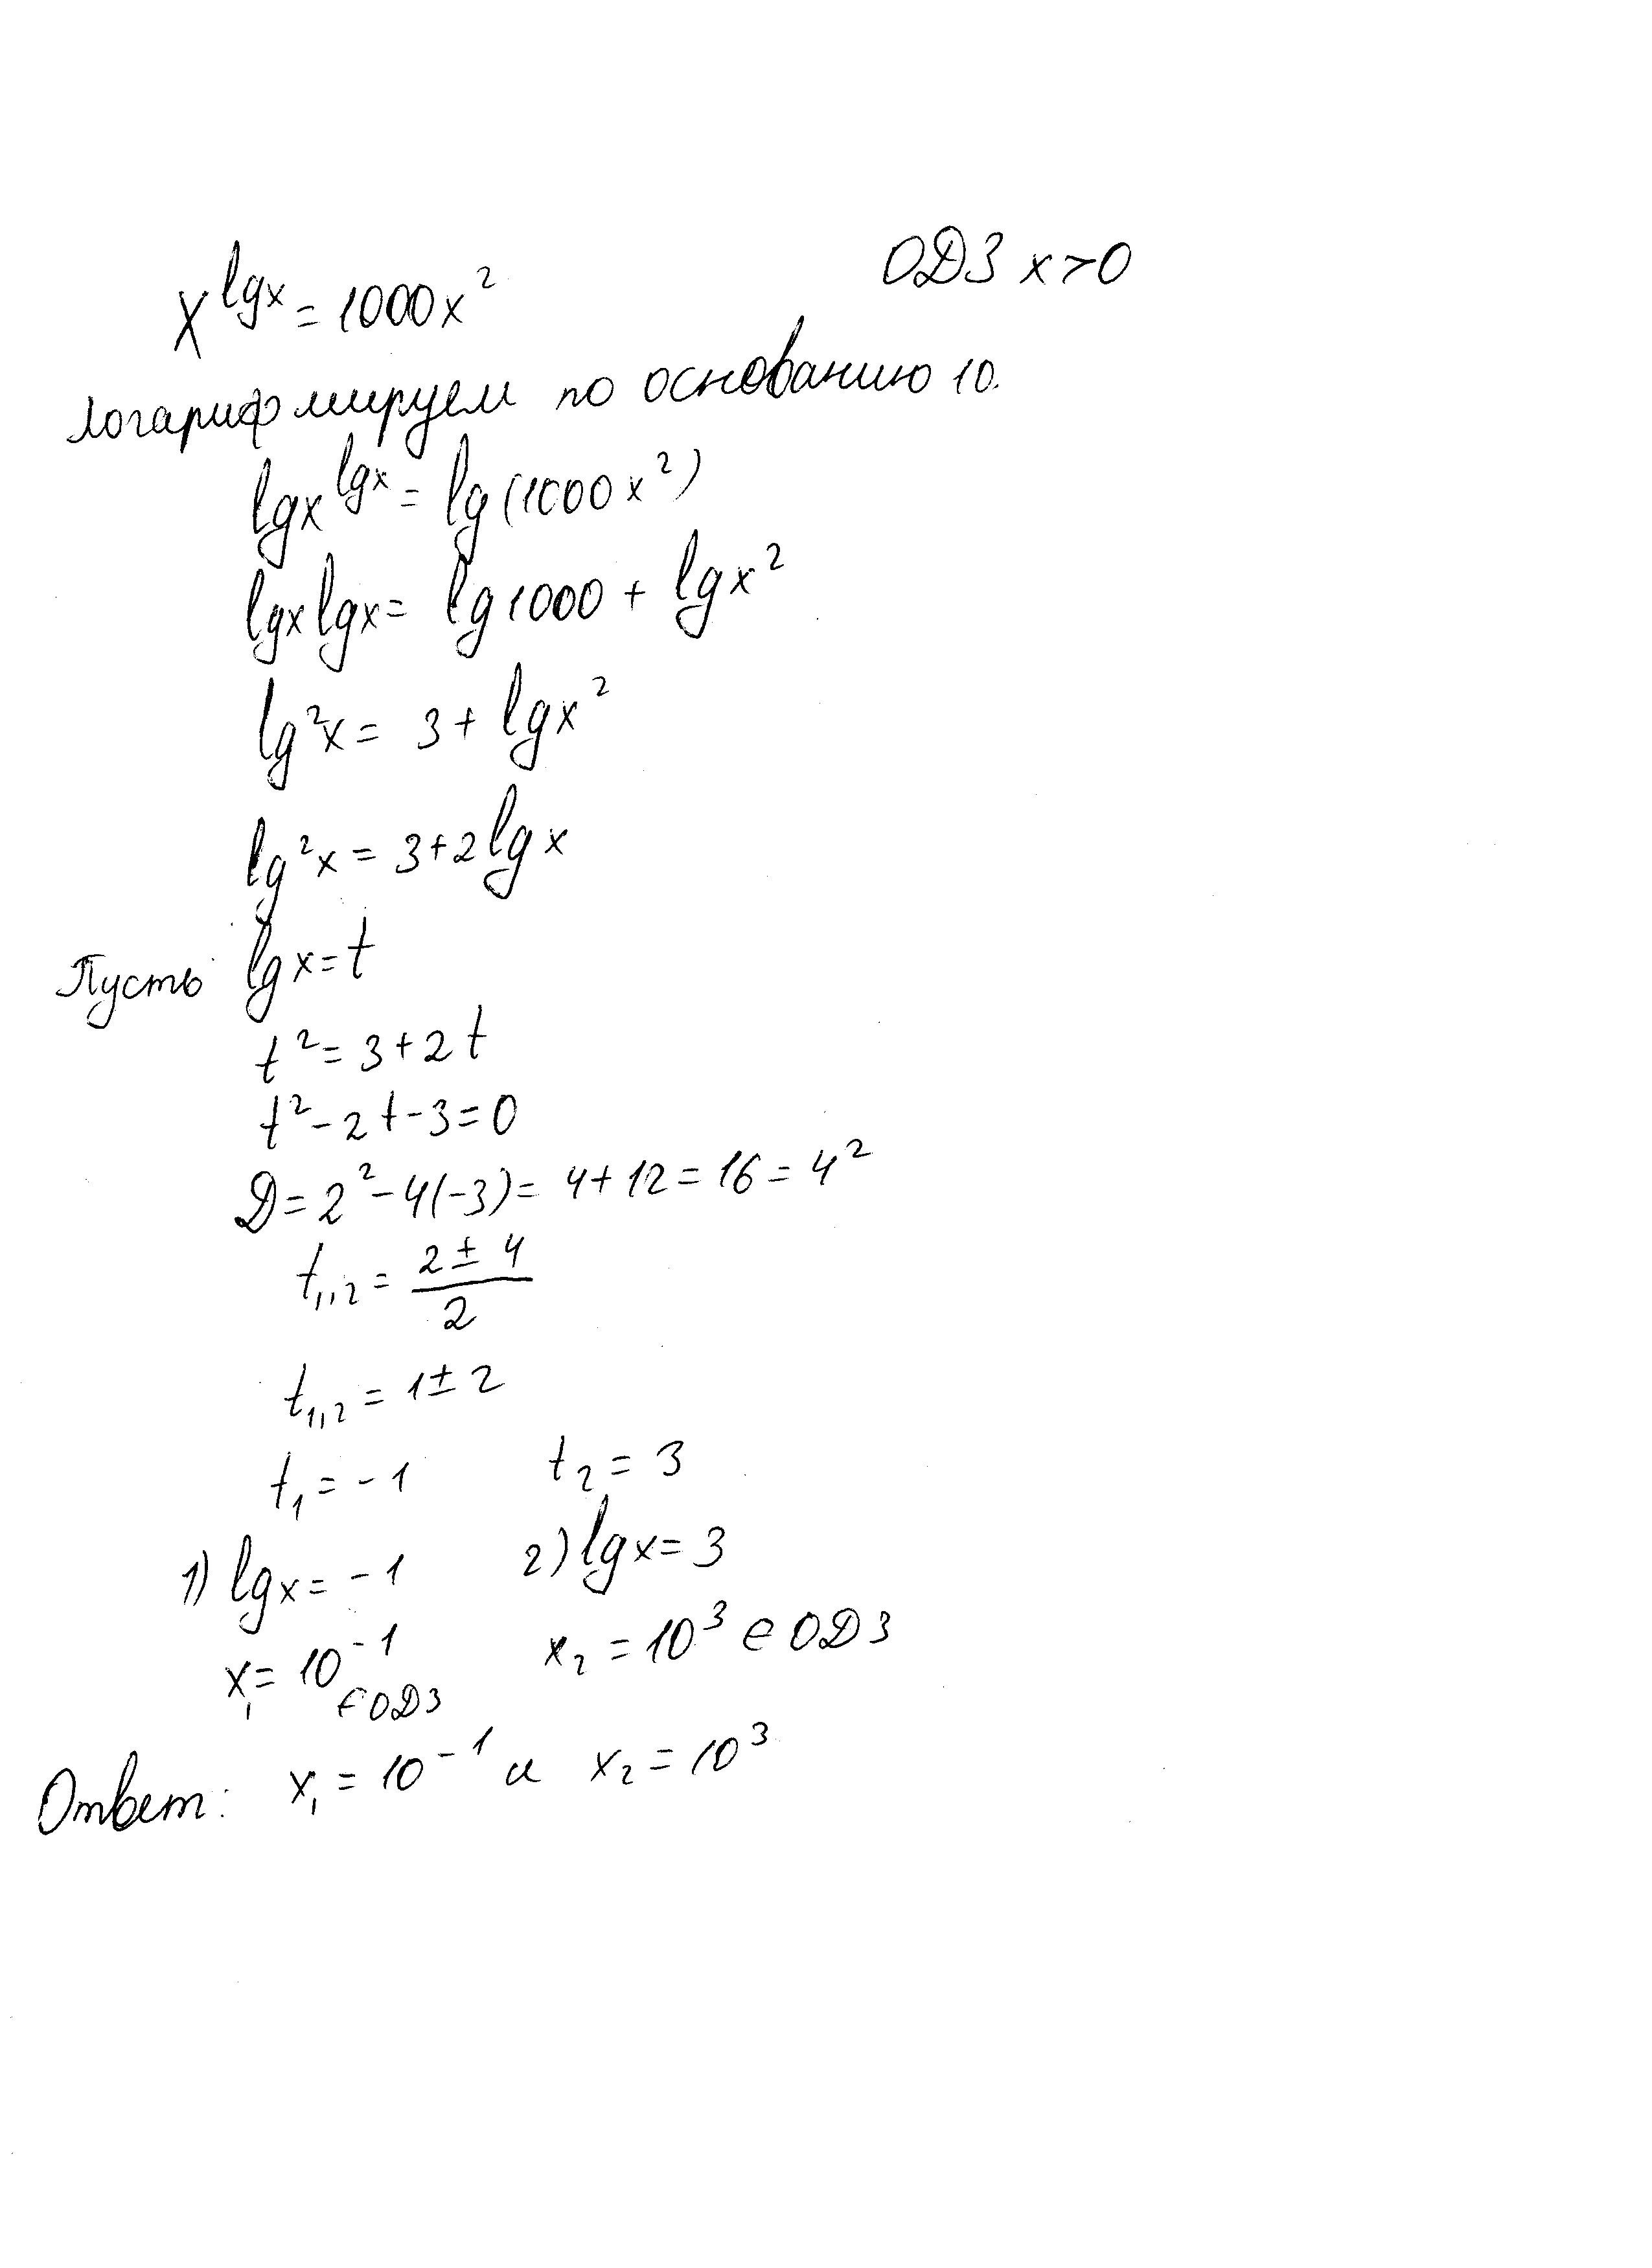 x^lgx = 1000x² ОДЗ x>0
Логарифмируем по основанию 10.
lgx^lgx = lg(1000x²)
lgx lgx = lg1000 + lgx²
lg²x = 3 + lgx²
lg²x = 3+2lgx
Пусть lgx=t
t² = 3+2t
t²-2t-3=0
D=2²-4(-3)= 4+12=16=4²
t₁,₂ = (2±4)/2
t₁,₂ = 1±2
t₁ = -1 t₂ = 3
1) lgx = -1 2) lgx = 3
x₁ = 10⁻¹ ∈ ОДЗ x₂ = 10³ ∈ ОДЗ
Ответ: x₁ = 10⁻¹ и x₂ = 10³